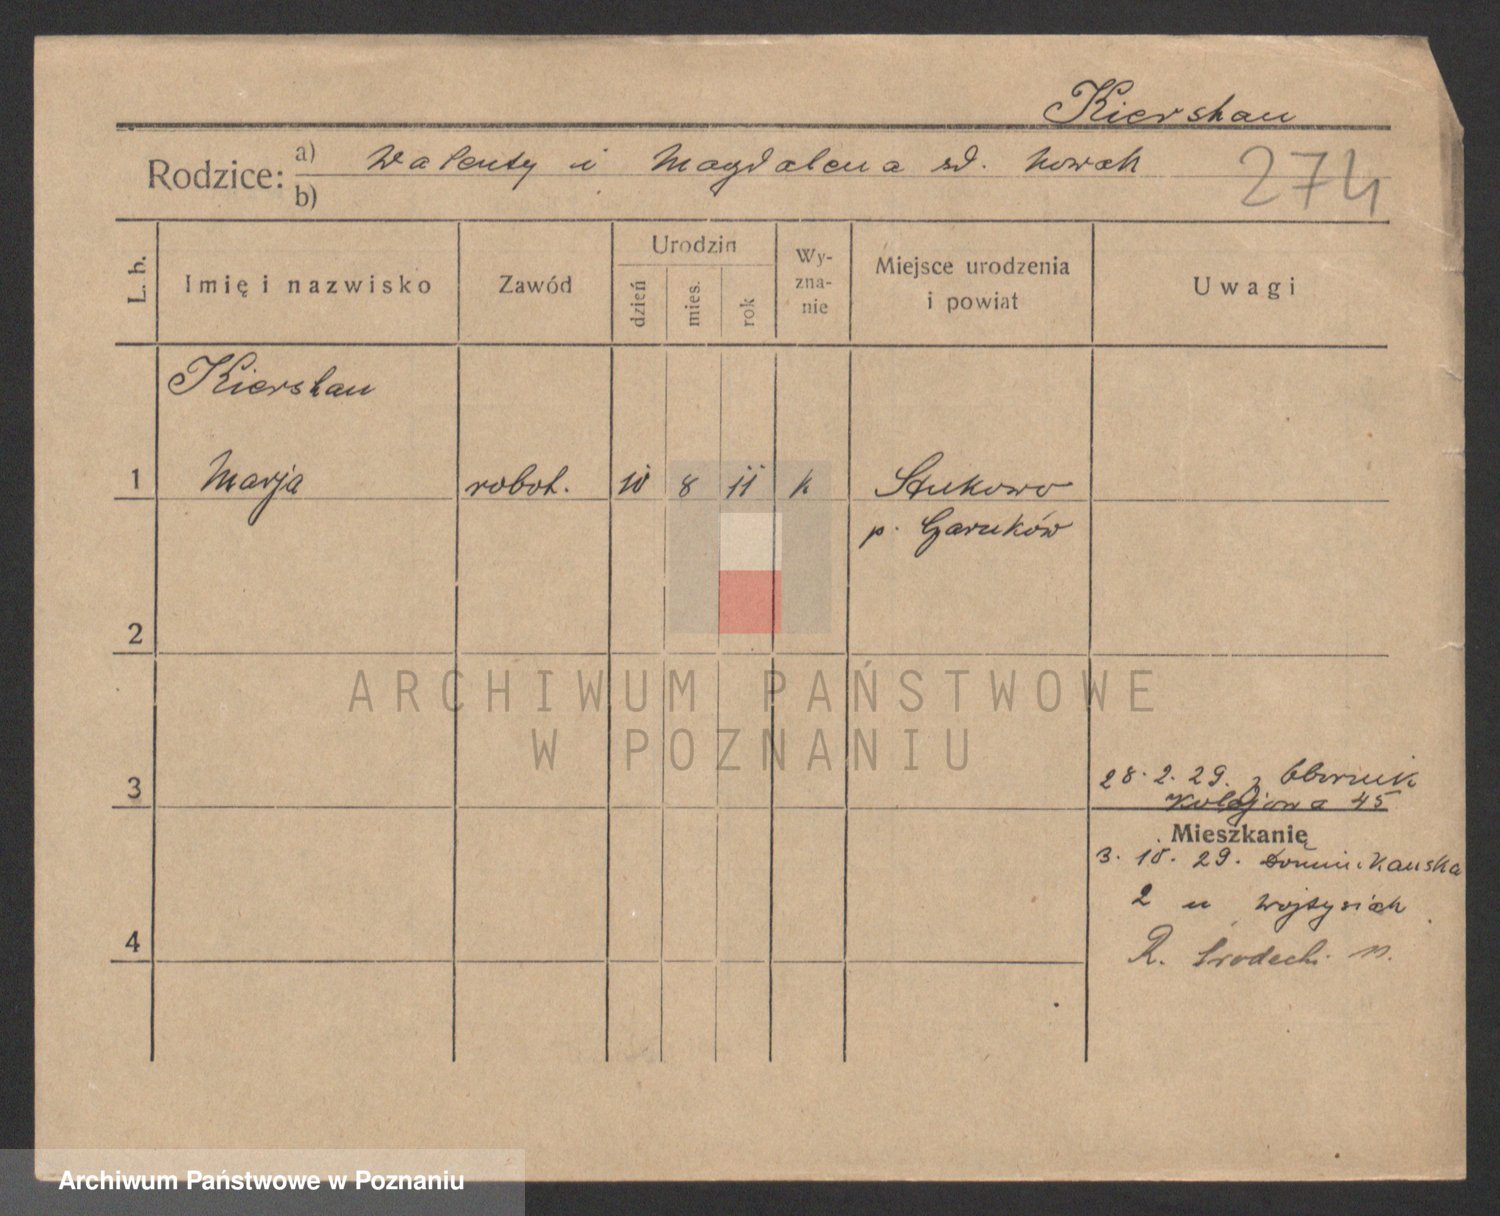 Kiershau
Rodzice: a) Walenty i Magdalena zd. Nowak
b)
274
L. b.
Imię i nazwisko
Zawód
Urodzin
dzień
mies.
rok
Wy-
zna-
nie
Miejsce urodzenia
i powiat
Uwagi
Kiershau
1 Marja robot. 10 8 11 k Stukowo
p. Garnków
2
ARCHIWUM PAŃSTWOWE
W POZNANIU
28.2.29. z Obornik
3
Kolejowa 45
Mieszkanie
3.10.29. Dominikańska
2 u Wojtysiak
4
R.
Archiwum Państwowe w Poznaniu